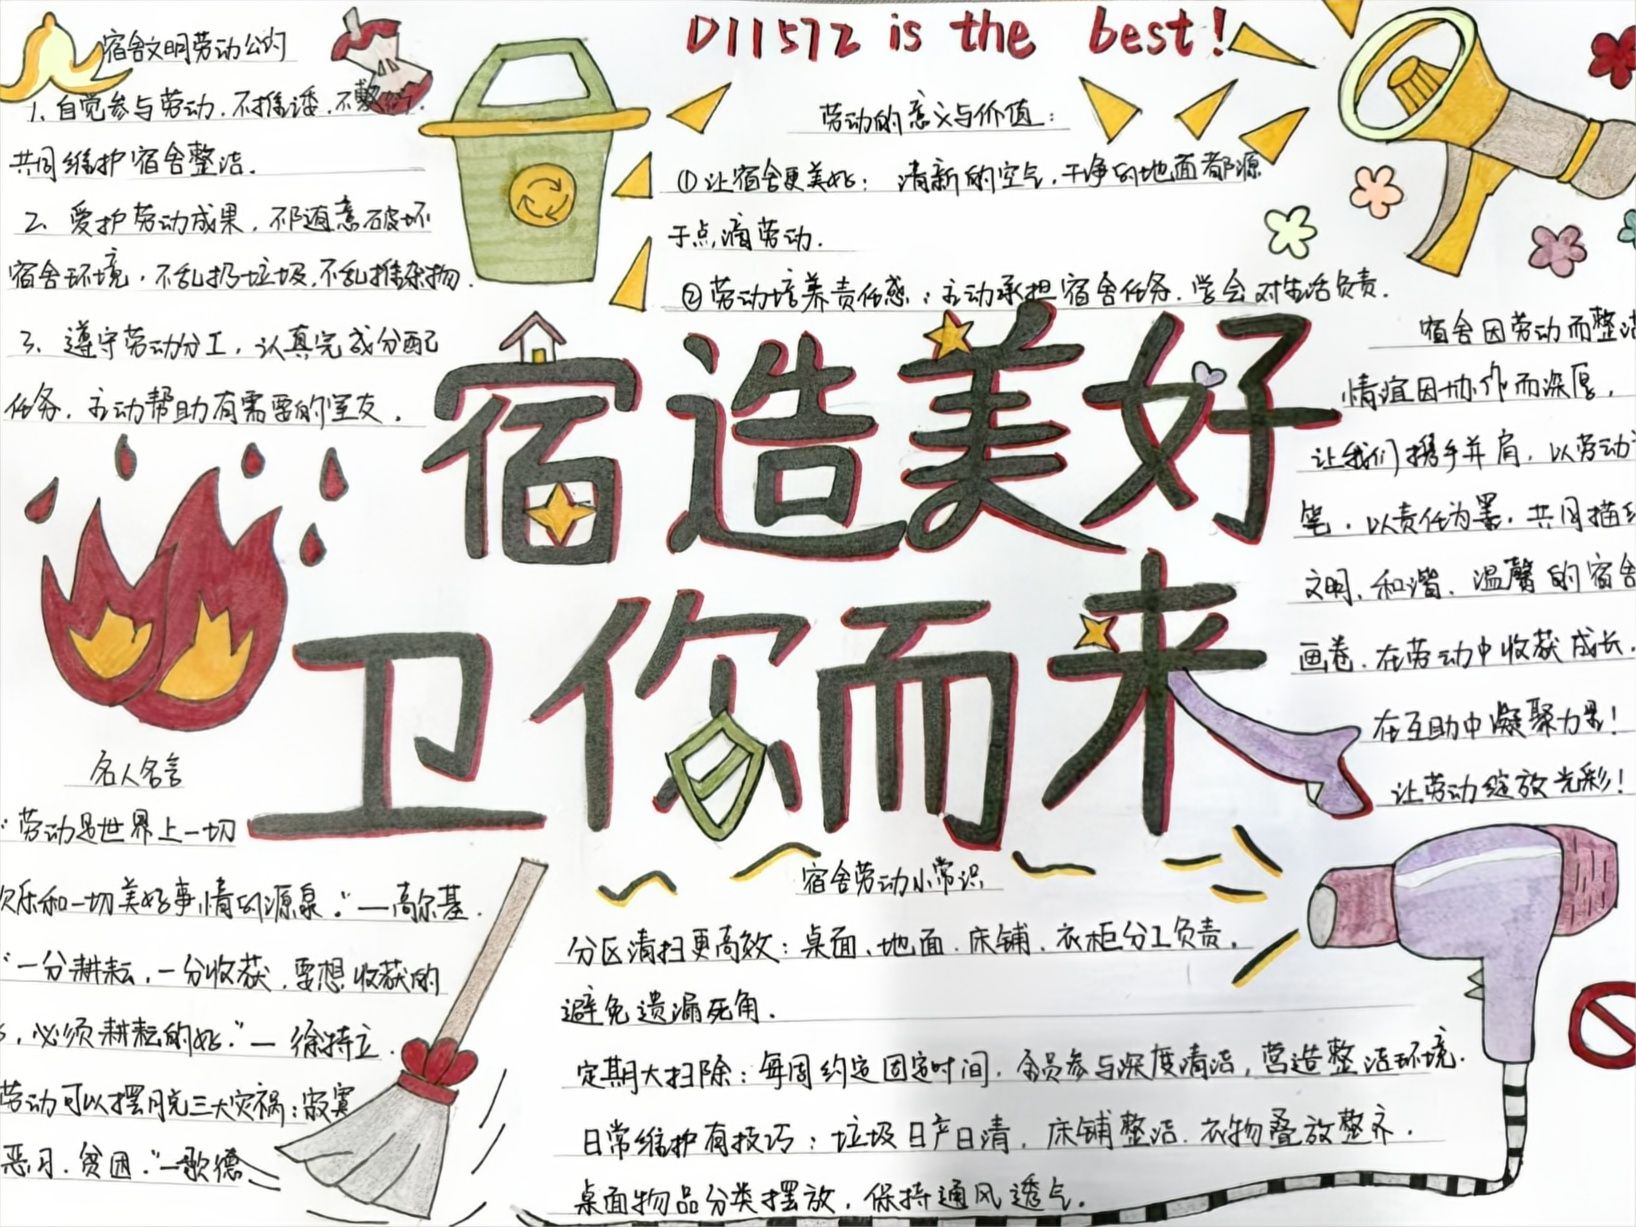 D11572 is the best!
宿舍文明劳动公约
1、自觉参与劳动，不推诿，不敷衍，
共同维护宿舍整洁．
2、爱护劳动成果，不随意破坏
宿舍环境，不乱扔垃圾，不乱堆杂物．
3、遵守劳动分工，认真完成分配
任务，主动帮助有需要的室友．
劳动的意义与价值：
①让宿舍更美好：清新的空气，干净的地面都源
于点滴劳动．
②劳动培养责任感：主动承担宿舍任务，学会对生活负责．
宿造美好
卫你而来
宿舍因劳动而整洁
情谊因协作而深厚，
让我们携手并肩，以劳动
笔，以责任为墨，共同描
文明、和谐、温馨的宿舍
画卷．在劳动中收获成长，
在互助中凝聚力量！
让劳动绽放光彩！
名人名言
"劳动是世界上一切
欢乐和一切美好事情的源泉．"—高尔基．
"一分耕耘，一分收获，要想收获的
，必须耕耘的好．"— 徐特立．
劳动可以摆脱三大灾祸：寂寞
恶习、贫困．"—歌德
宿舍劳动小常识
分区清扫更高效：桌面、地面、床铺、衣柜分工负责，
避免遗漏死角．
定期大扫除：每周约定固定时间，全员参与深度清洁，营造整洁环境．
日常维护有技巧：垃圾日产日清，床铺整洁，衣物叠放整齐．
桌面物品分类摆放，保持通风透气．